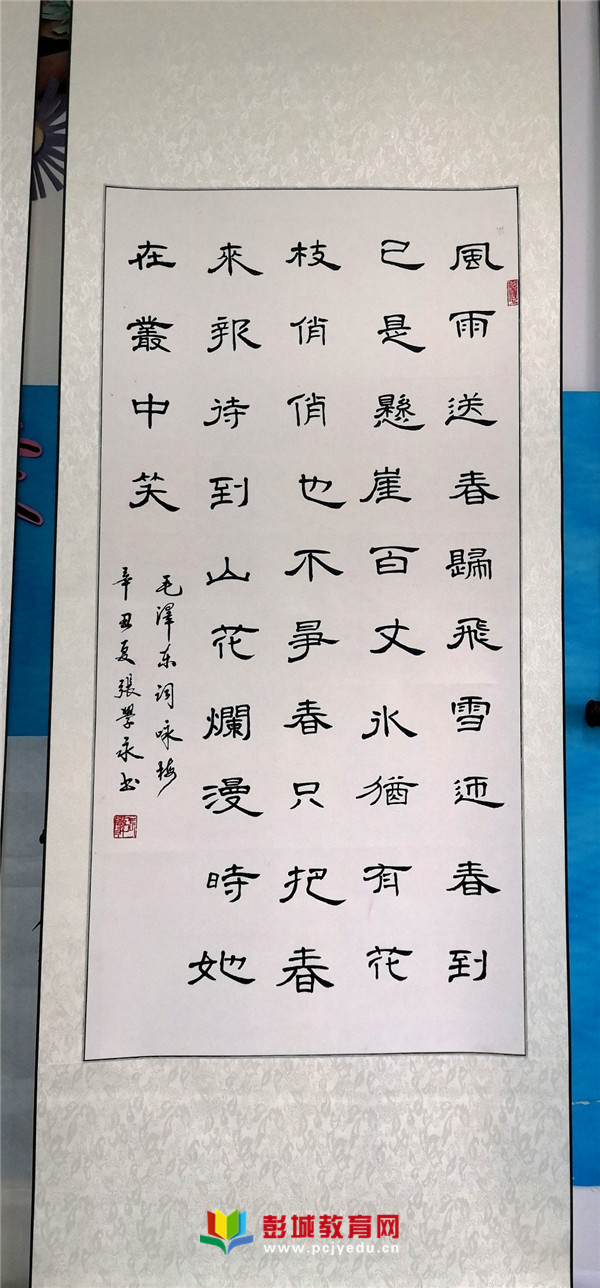 風雨送春歸飛雪迎春到
已是懸崖百丈冰猶有花
枝俏俏也不爭春只把春
來報待到山花爛漫時她
在叢中笑
毛澤东詞咏梅
辛丑夏張學永书
彭城教育网
www.pcjyedu.cn